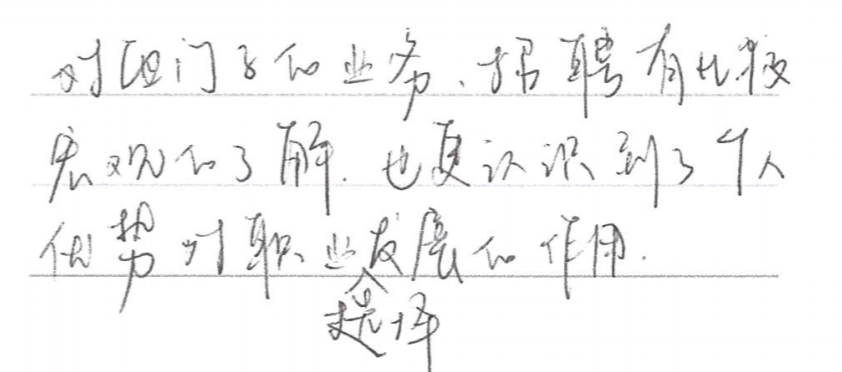 对西门子的业务、招聘有比较
宏观的了解.也更认识到了个人
优势对职业发展的作用.
选择